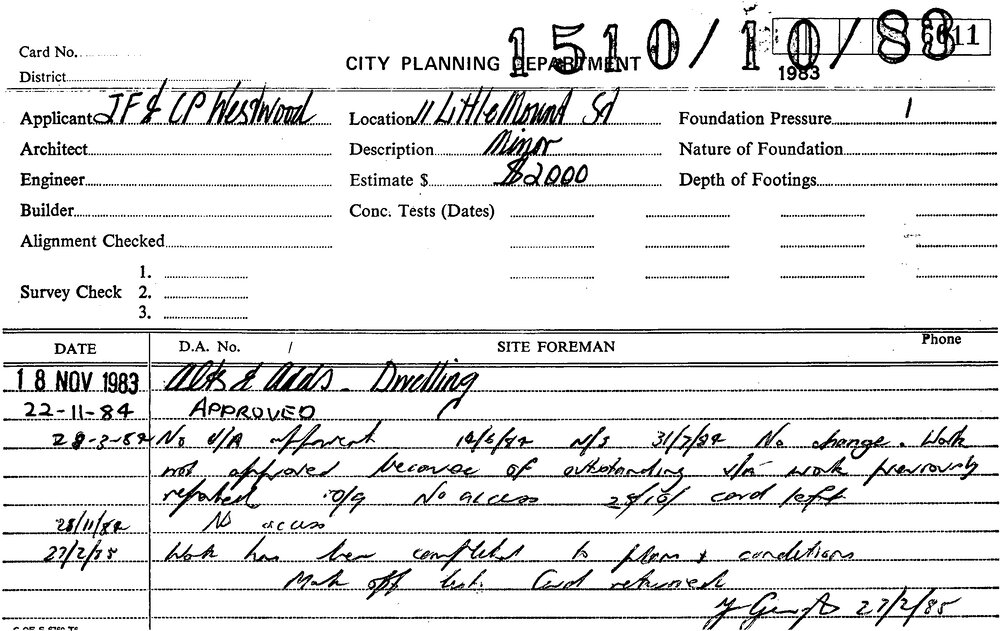 1510/10/83 6611
Card No.
CITY PLANNING DEPARTMENT
1983
District
Applicant JF & CP Westwood Location 11 Little Mount St Foundation Pressure 1
Architect Description Minor Nature of Foundation
Engineer Estimate $ $2000 Depth of Footings
Builder Conc. Tests (Dates)
Alignment Checked
1.
Survey Check 2.
3.
DATE D.A. No. / SITE FOREMAN Phone
18 NOV 1983 Alts & Adds - Dwelling
22-11-84 APPROVED
28-2-84 No U/A apparent 14/6/84 N/S 31/7/84 No change. Work
not approved because of outstanding work previously
reported 10/9 No access 28/10/ card left
28/11/84 No access
27/2/85 Work has been completed to plans & conditions
Mark off list. Card returned
27/2/85